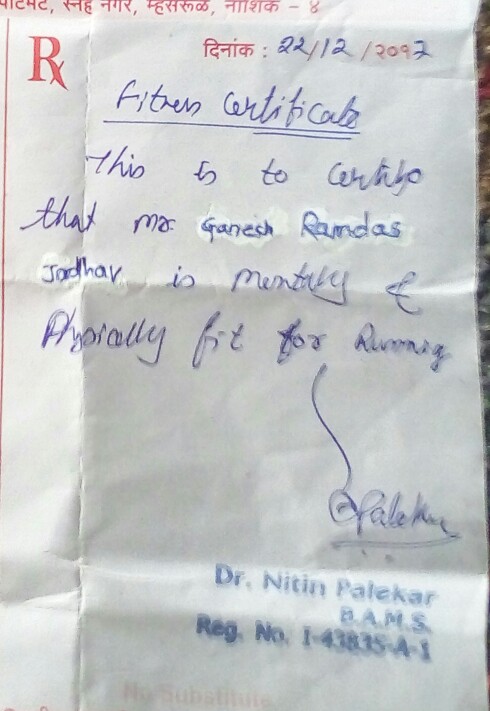 स्नेह नगर, म्हसरूळ, नाशिक - ४
Rx
दिनांक : 22/12/२०१7
Fitness Certificate
This is to certify
that mr. Ganesh Ramdas
Jadhav is mentally &
Physically fit for Running
Dr. Nitin Palekar
B.A.M.S.
Reg. No. I-43835-A-1
No Substitute